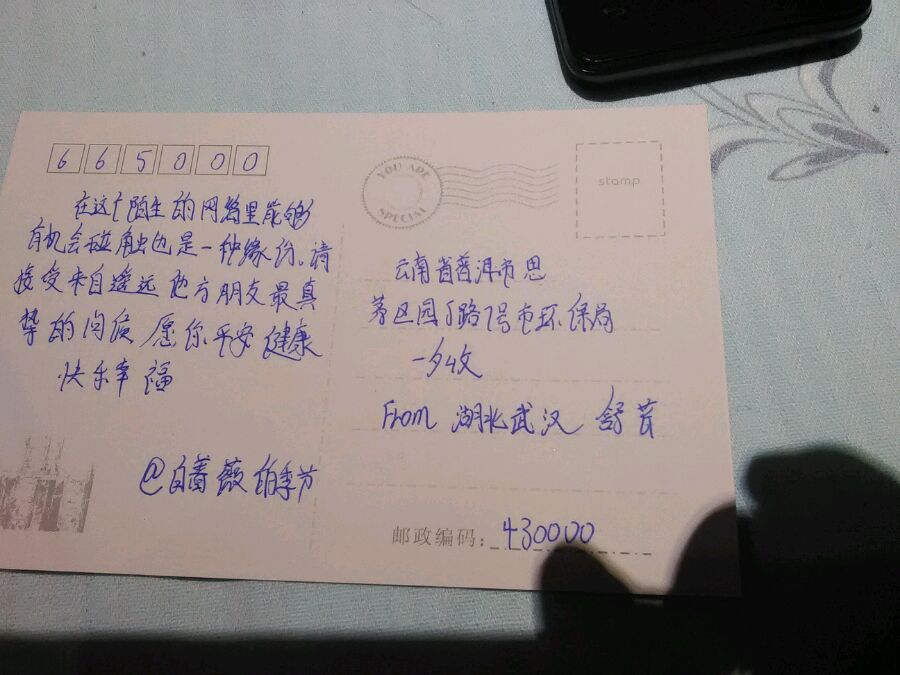 665000
在这个陌生的网络里能够
有机会碰触也是一种缘份,请
接受来自遥远地方朋友最真
挚的问候 愿你平安健康
快乐幸福
@白蔷薇的季节
YOU ARE
SPECIAL
stamp
云南省普洱市思
茅区园丁路7号市环保局
一夕收
From 湖北武汉 舒
邮政编码：430000